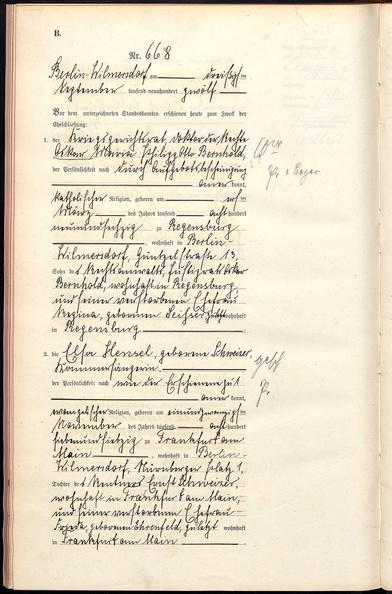 B.
Nr. 668
Berlin-Wilmersdorf am dreißigsten
September tausend neunhundert zwölf
Vor dem unterzeichneten Standesbeamten erschienen heute zum Zweck der
Eheschließung:
1. der Kriegsgerichtsrat, Doktor der Rechte
Oskar Maria Philipp Otto Bernhold,
der Persönlichkeit nach durch Aufgebotsbescheinigung
anerkannt,
katholischer Religion, geboren am
März des Jahres tausend achthundert
neunundsechzig zu Regensburg
wohnhaft in Berlin-
Wilmersdorf, Güntzelstraße 13,
Sohn des Rechtsanwalts, Justizrat Oskar
Bernhold, wohnhaft in Regensburg,
und seiner verstorbenen Ehefrau
Regina, geborenen zuletzt wohnhaft
in Regensburg
2. die Elsa Hensel, geborene Schweizer, gesch
Kammersängerin
der Persönlichkeit nach wie der Erschienene zu 1
anerkannt,
evangelischer Religion, geboren am einundzwanzigsten
November des Jahres tausend achthundert
siebenundsiebzig zu Frankfurt am
Main wohnhaft in Berlin-
Wilmersdorf, Nürnberger Platz 1,
Tochter des Rentners Ernst Schweizer,
wohnhaft in Frankfurt am Main,
und seiner verstorbenen Ehefrau
Frieda, geborenen Ehrenfeld, zuletzt wohnhaft
in Frankfurt am Main